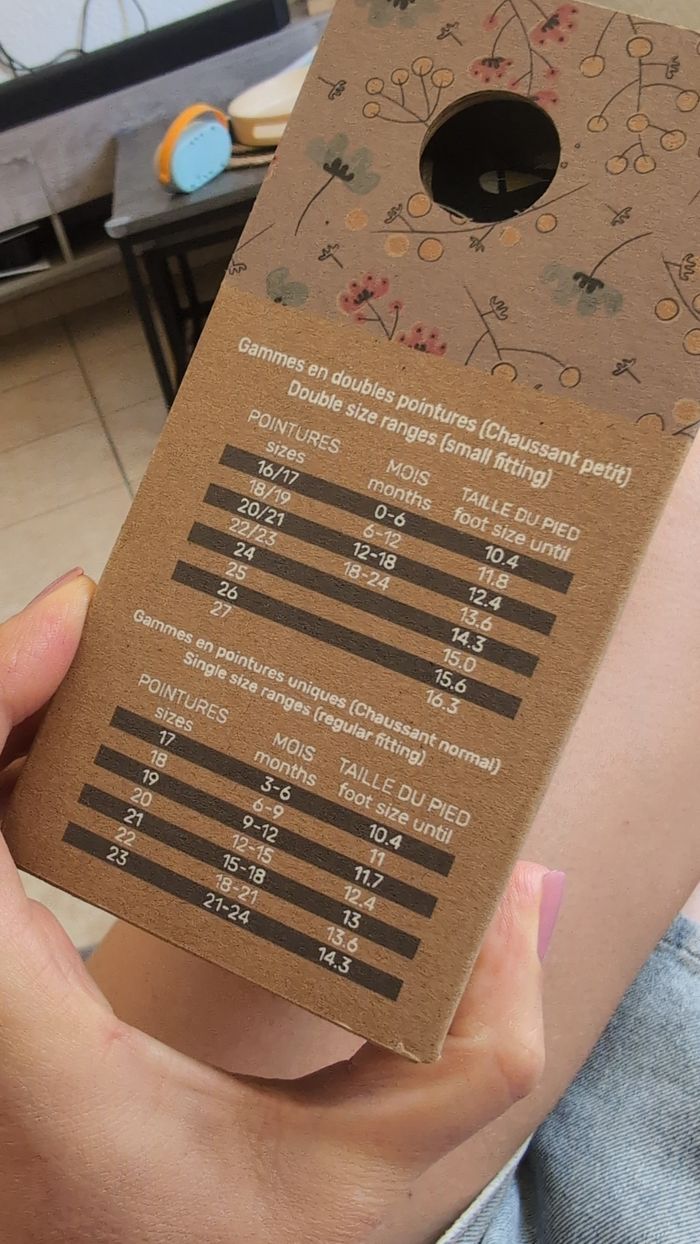 Gammes en doubles pointures (Chaussant petit)
Double size ranges (small fitting)
POINTURES MOIS TAILLE DU PIED
sizes months foot size until
16/17 0-6 10.4
18/19 6-12 11.8
20/21 12-18 12.4
22/23 18-24 13.6
24 14.3
25 15.0
26 15.6
27 16.3
Gammes en pointures uniques (Chaussant normal)
Single size ranges (regular fitting)
POINTURES MOIS TAILLE DU PIED
sizes months foot size until
17 3-6 10.4
18 6-9 11
19 9-12 11.7
20 12-15 12.4
21 15-18 13
22 18-21 13.6
23 21-24 14.3